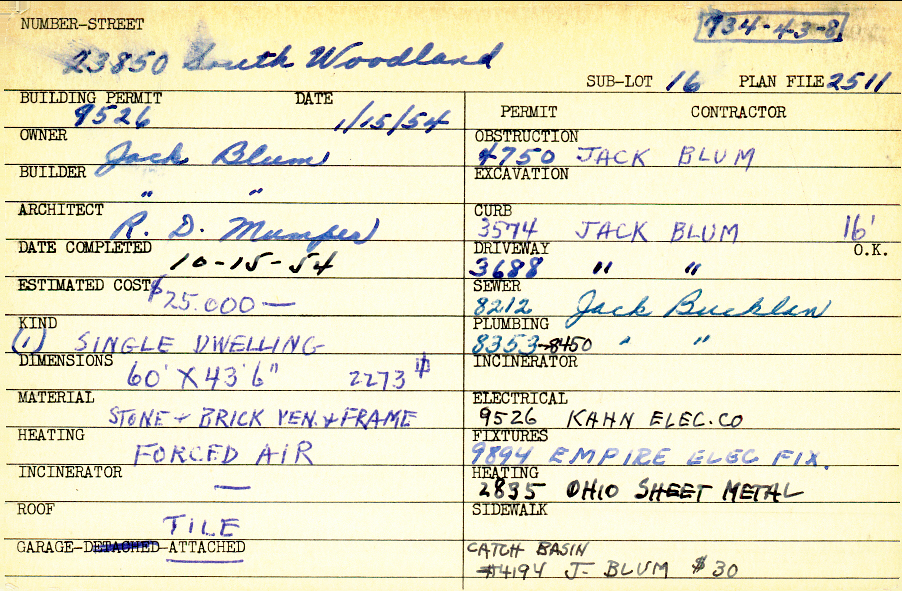 NUMBER-STREET
934-43-8
23850 South Woodland
SUB-LOT 16 PLAN FILE 2511
BUILDING PERMIT DATE
9526 1/15/54
OWNER
Jack Blum
BUILDER
" "
ARCHITECT
R. D. Mumper
DATE COMPLETED
10-15-54
ESTIMATED COST
$25.000—
KIND
(1) SINGLE DWELLING
DIMENSIONS
60' X 43'6" 2273
MATERIAL
STONE + BRICK VEN. + FRAME
HEATING
FORCED AIR
INCINERATOR
—
ROOF
TILE
GARAGE-DETACHED-ATTACHED
PERMIT CONTRACTOR
OBSTRUCTION
4750 JACK BLUM
EXCAVATION
CURB
3574 JACK BLUM 16'
DRIVEWAY O.K.
3688 " "
SEWER
8212 Jack Bucklan
PLUMBING
8353-8450 " "
INCINERATOR
ELECTRICAL
9526 KAHN ELEC.CO
FIXTURES
9894 EMPIRE ELEC FIX.
HEATING
2835 OHIO SHEET METAL
SIDEWALK
CATCH BASIN
#4194 J. BLUM $30